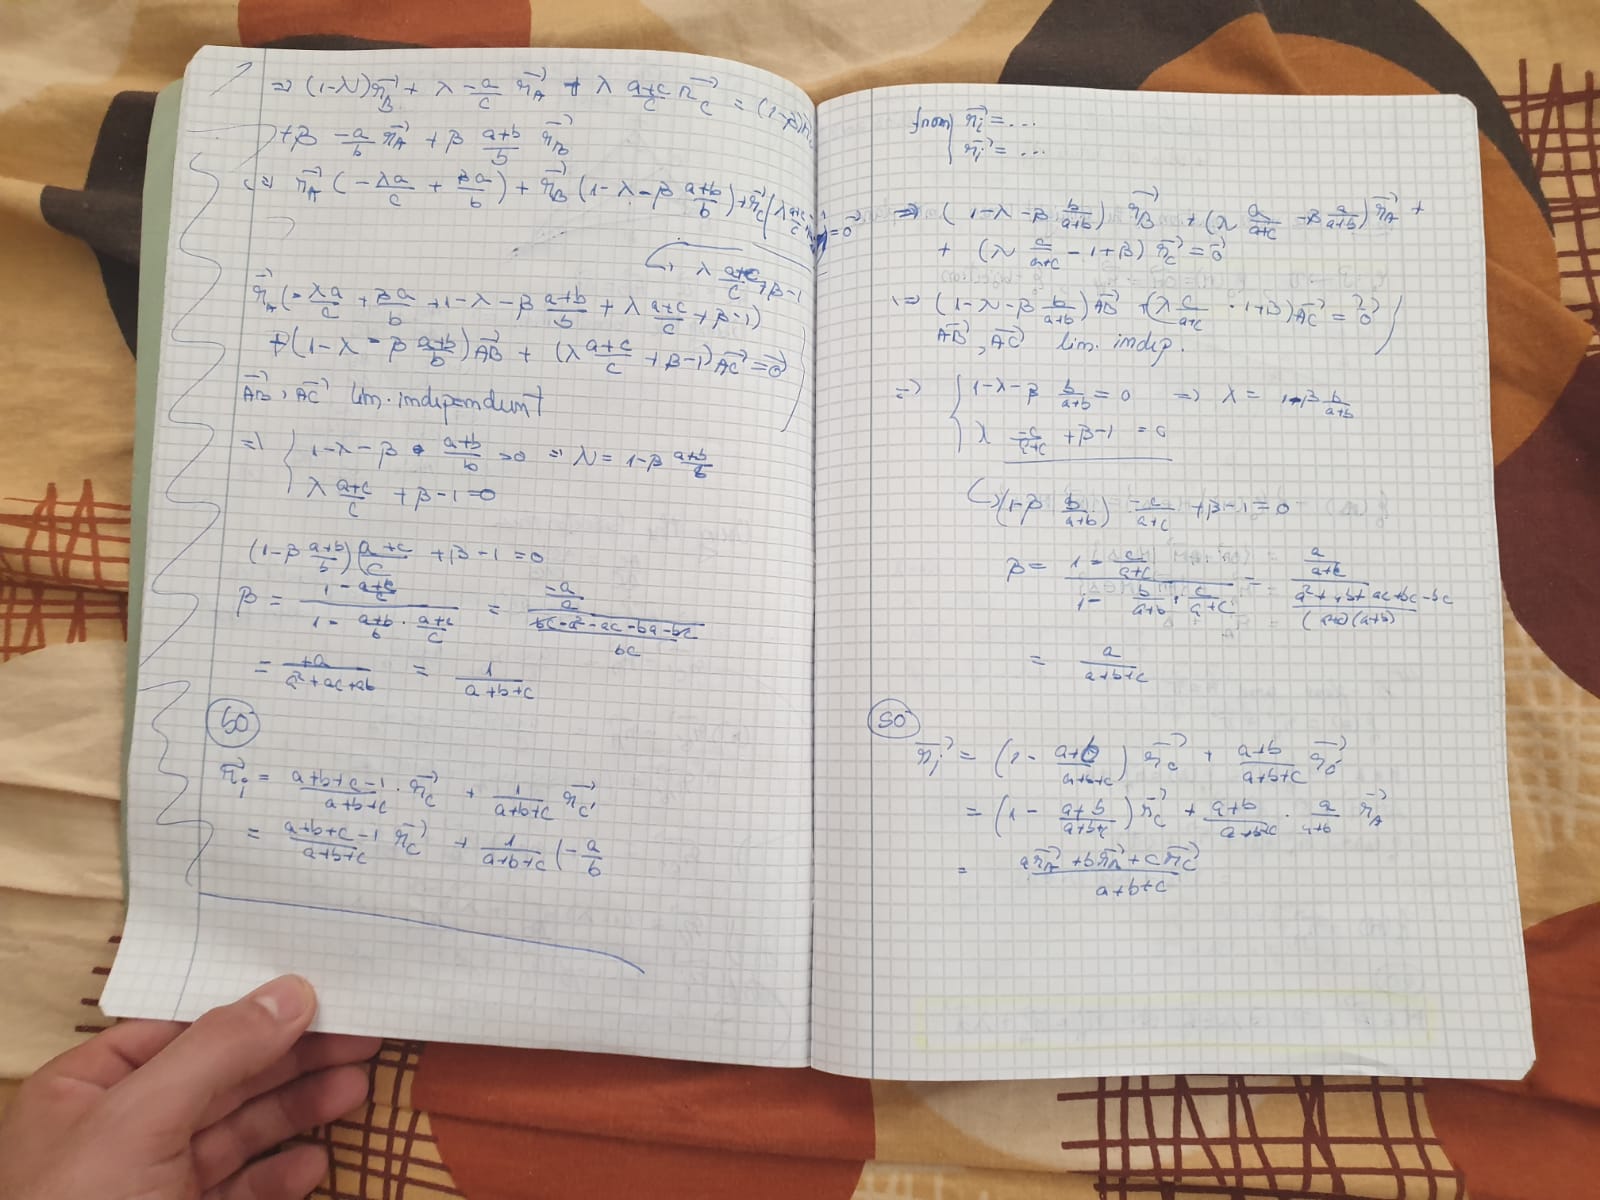 ⇒ (1-λ) r_B→ + λ -a/c r_A→ + λ (a+c)/c r_C→ = (1-β) r
+ β -a/b r_A→ + β (a+b)/b r_B→
⇒ r_A→ (-λa/c + βa/b) + r_B→ (1-λ-β (a+b)/b) + r_C→ (λ (a+c)/c = 0→
↳ λ (a+c)/c + β-1
r_A→ (-λa/c + βa/b + 1-λ-β (a+b)/b + λ (a+c)/c + β-1)
+ (1-λ-β (a+b)/b) AB→ + (λ (a+c)/c + β-1) AC→ = 0→
AB→, AC→ lin. independent
⇒ { 1-λ-β · (a+b)/b = 0 ⇒ λ = 1-β (a+b)/b
λ (a+c)/c + β-1 = 0
(1-β (a+b)/b) (a+c)/c + β-1 = 0
β = (1 - (a+c)/c) / (1 - (a+b)/b · (a+c)/c) = (-a/a) / ((bc-a²-ac-ba-bc)/bc)
= +a/(a²+ac+ab) = 1/(a+b+c)
SO
r_i→ = (a+b+c-1)/(a+b+c) · r_C→ + 1/(a+b+c) r_C'→
= (a+b+c-1)/(a+b+c) r_C→ + 1/(a+b+c) (-a/b
from { r_i→ = ...
r_i→ = ...
⇒ (1-λ-β b/(a+b)) r_B→ + (λ a/(a+c) - β a/(a+b)) r_A→ +
+ (λ c/(a+c) - 1+β) r_C→ = 0→
⇒ (1-λ-β b/(a+b)) AB→ + (λ c/(a+c) - 1+β) AC→ = 0→
AB→, AC→ lin. indep.
⇒ { 1-λ-β b/(a+b) = 0 ⇒ λ = 1-β b/(a+b)
λ c/(a+c) + β-1 = 0
↳ (1-β b/(a+b)) c/(a+c) + β-1 = 0
β = (1 - c/(a+c)) / (1 - b/(a+b) · c/(a+c)) = (a/(a+c)) / ((a²+ab+ac+bc-bc)/((a+c)(a+b)))
= a/(a+b+c)
SO
r_i→ = (1 - (a+b)/(a+b+c)) r_C→ + (a+b)/(a+b+c) r_C'→
= (1 - (a+b)/(a+b+c)) r_C→ + (a+b)/(a+b+c) · a/(a+b) r_A→
= (a r_A→ + b r_B→ + c r_C→)/(a+b+c)